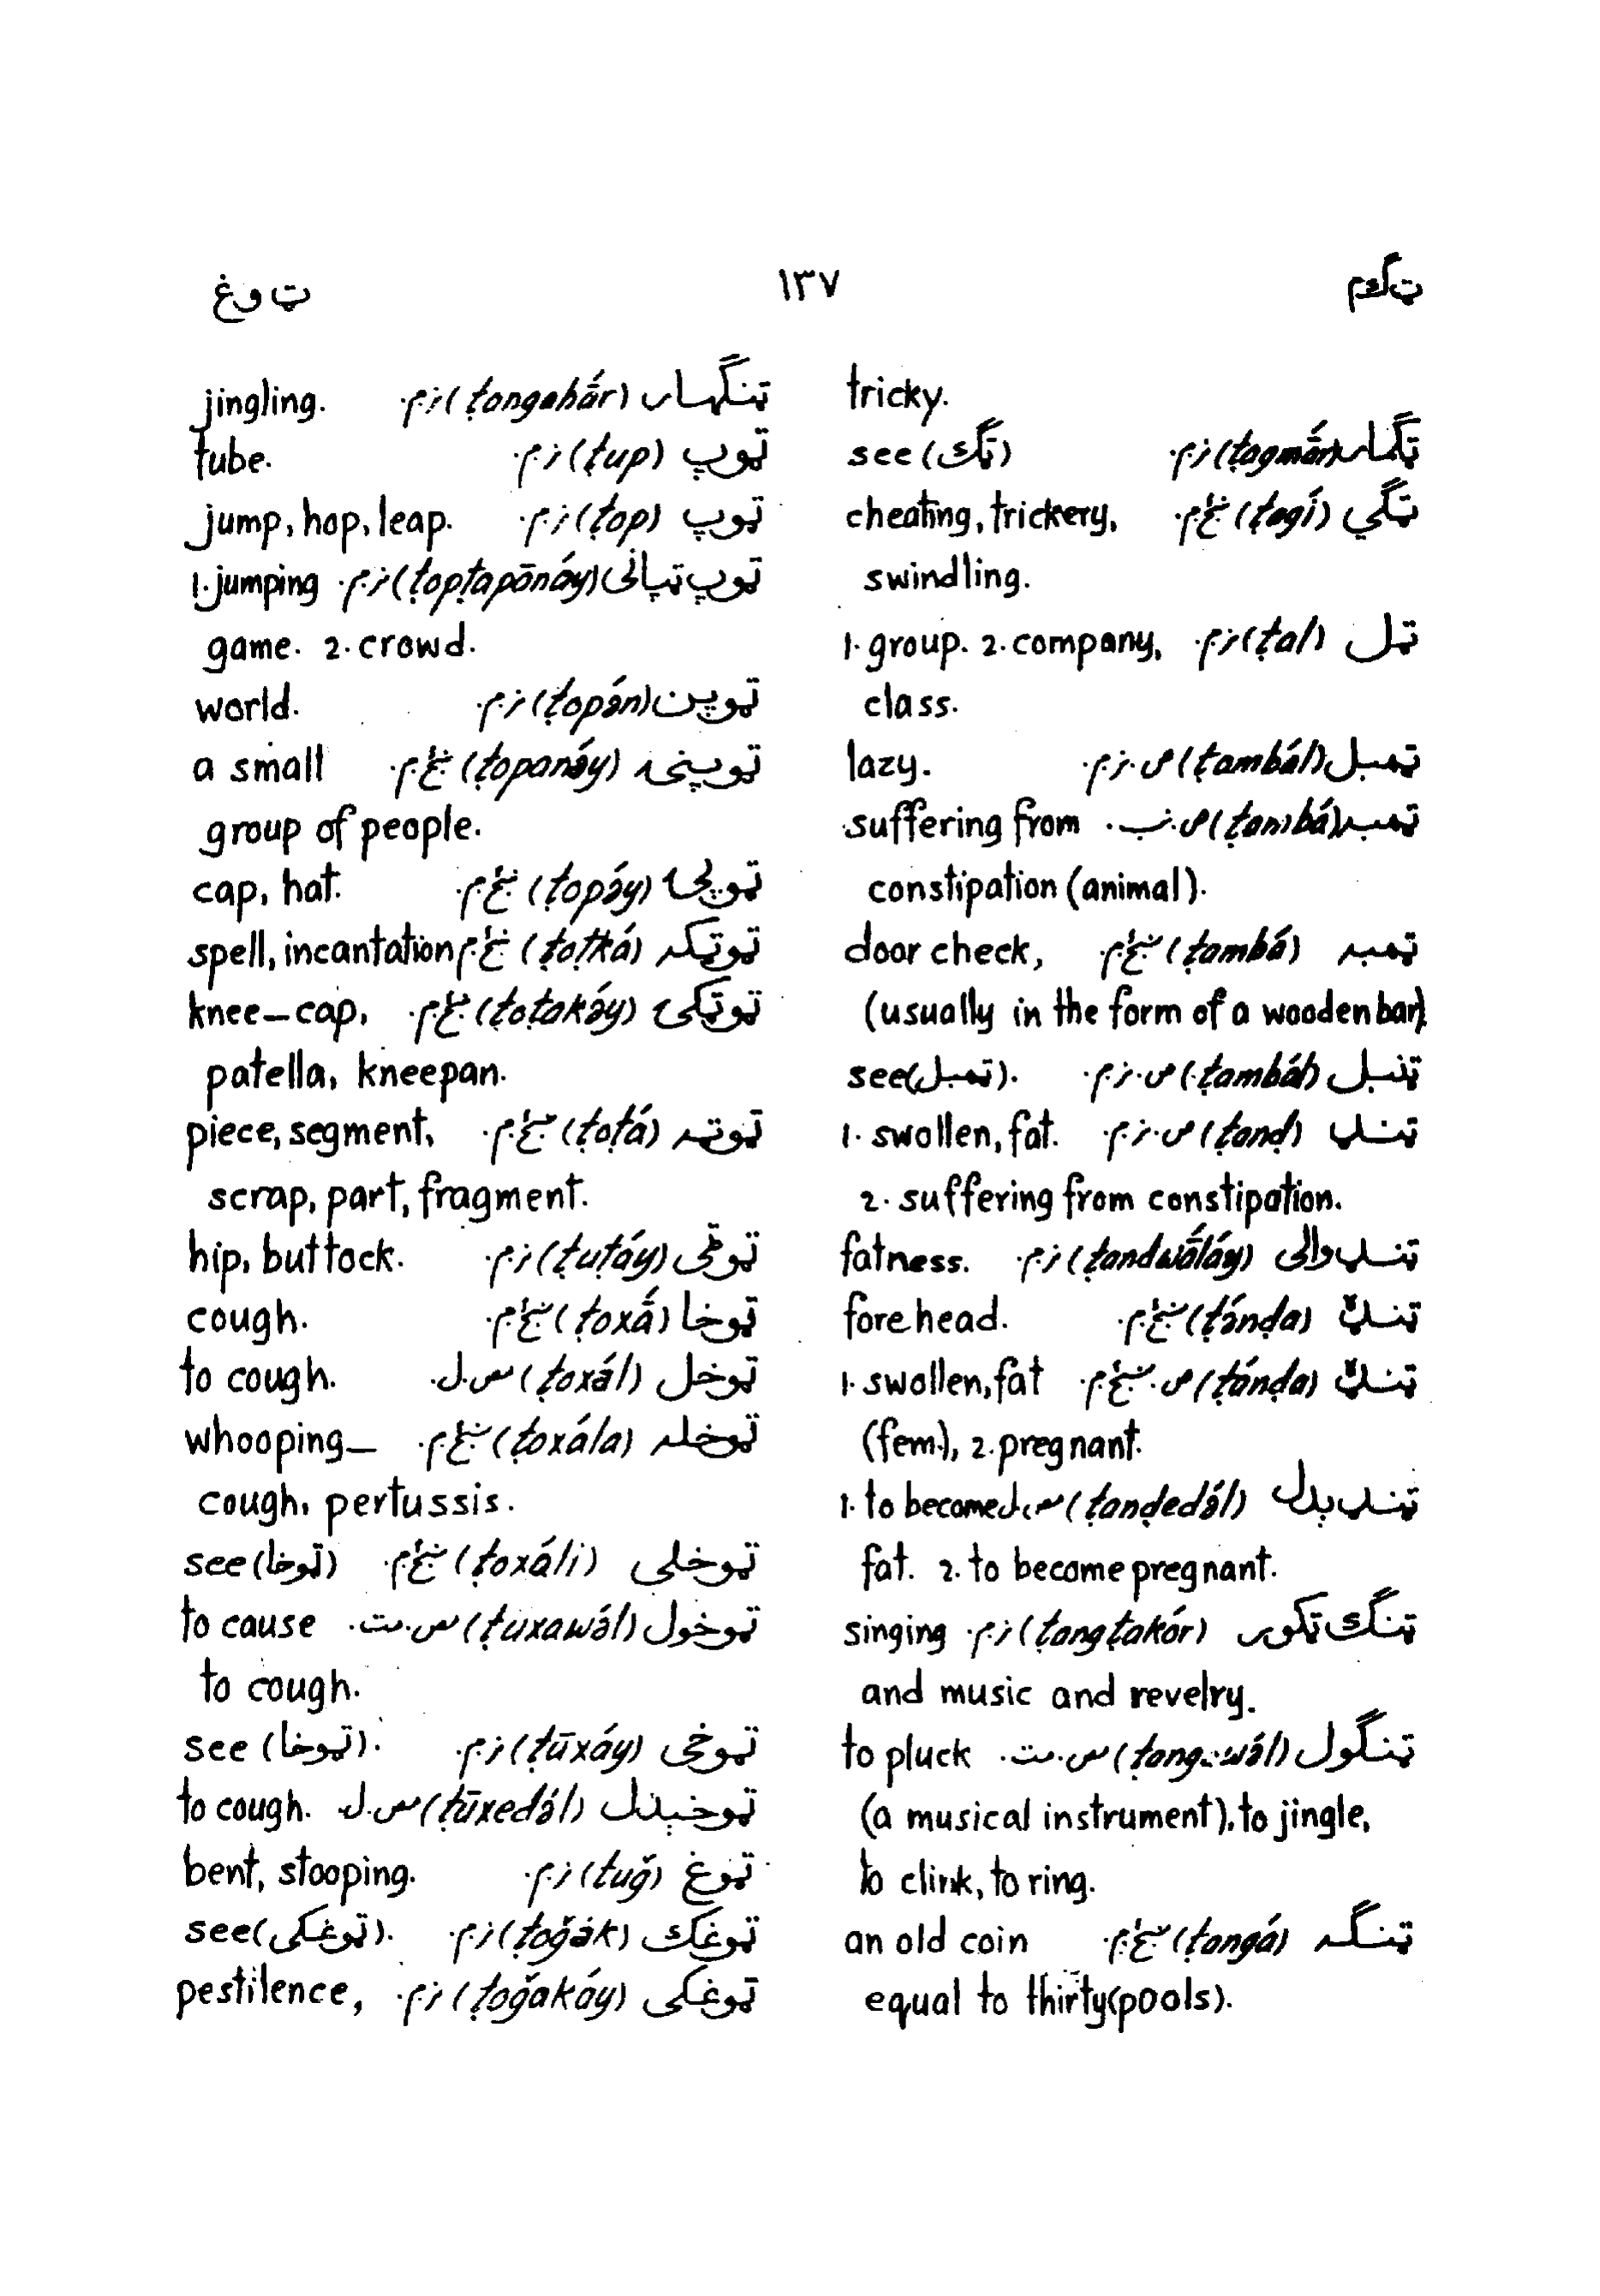 ټ گ م
۱۳۷
ټ و غ
tricky.
ټگمار (ṭagmā́r) نر.م. see (ټگ)
ټگي (ṭagí) ښځ.م. cheating, trickery,
swindling.
ټل (ṭal) نر.م. 1. group. 2. company,
class.
ټمبل (ṭambál) ص.نر.م. lazy.
ټمبه (ṭambá) suffering from
constipation (animal).
ټمبه (ṭambá) ښځ.م. door check,
(usually in the form of a wooden bar).
ټنبل (ṭambál) ص.نر.م. see (ټمبل).
ټنډ (ṭanḍ) ص.نر.م. 1. swollen, fat.
2. suffering from constipation.
ټنډوالی (ṭandwā́láy) نر.م. fatness.
ټنډه (ṭánḍa) ښځ.م. forehead.
ټنډه (ṭánḍa) ص.ښځ.م. 1. swollen, fat
(fem.), 2. pregnant.
ټنډېدل (ṭanḍedə́l) 1. to become
fat. 2. to become pregnant.
ټنگ ټکور (ṭangṭakór) نر.م. singing
and music and revelry.
ټنگول (ṭangawə́l) مص.مت. to pluck
(a musical instrument), to jingle,
to clink, to ring.
ټنگه (ṭangá) ښځ.م. an old coin
equal to thirty (pools).
ټنگهار (ṭangahā́r) نر.م. jingling.
ټوپ (ṭup) نر.م. tube.
ټوپ (ṭop) نر.م. jump, hop, leap.
ټوپ ټپانی (ṭopṭapānáy) نر.م. 1. jumping
game. 2. crowd.
ټوپن (ṭopə́n) نر.م. world.
ټوپنۍ (ṭopanə́y) ښځ.م. a small
group of people.
ټوپۍ (ṭopə́y) ښځ.م. cap, hat.
ټوټکه (ṭoṭká) ښځ.م. spell, incantation
ټوټکۍ (ṭoṭakə́y) ښځ.م. knee-cap,
patella, kneepan.
ټوټه (ṭoṭá) ښځ.م. piece, segment,
scrap, part, fragment.
ټوټی (ṭuṭáy) نر.م. hip, buttock.
ټوخا (ṭoxā́) ښځ.م. cough.
ټوخل (ṭoxə́l) مص.ل. to cough.
ټوخله (ṭoxála) ښځ.م. whooping-
cough, pertussis.
ټوخلی (ṭoxáli) ښځ.م. see (ټوخا)
ټوخول (ṭuxawə́l) مص.مت. to cause
to cough.
ټوخی (ṭūxáy) نر.م. see (ټوخا).
ټوخېدل (ṭūxedə́l) مص.ل. to cough.
ټوغ (ṭuğ) نر.م. bent, stooping.
ټوغک (ṭoğə́k) نر.م. see (ټوغکی).
ټوغکی (ṭoğakáy) نر.م. pestilence,